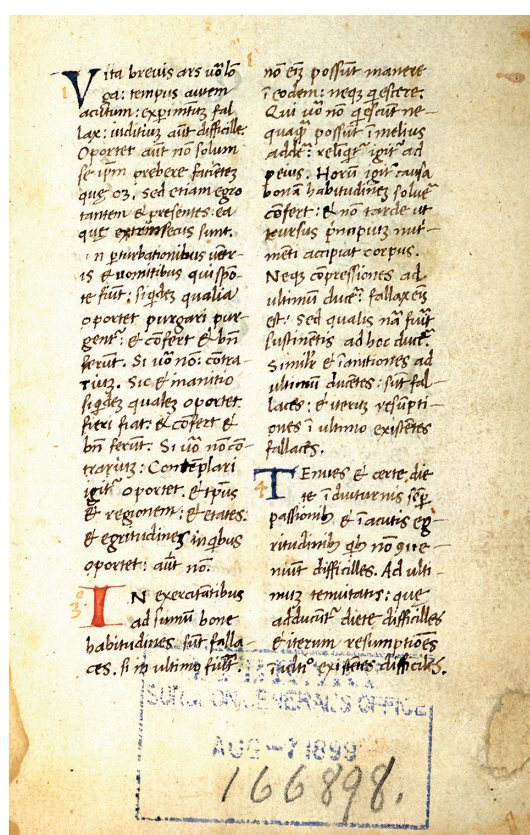 Vita brevis ars uõ lõ
ga: tempus autem
acutum: experimẽtũ fal
lax: iuditiuz aũt difficille.
Oportet aũt nõ solum
se ipm prebere facientez
que oz. Sed etiam egro
tantem & presentes: ea
que extrinsecus sunt.
In perturbationibus uẽtr
is & uomitibus qui spõ
te fiũt: siqdez qualia
oportet purgari pur
gentr: & cõfert & bñ
ferunt. Si uõ nõ: cõntra
riuz. Sic & inanitio
siqdez qualez oportet
fieri fiat: & cõfert &
bñ ferũt. Si uõ nõ cõ
trariuz: Contẽplari
igitr oportet. & tps
& regionem: & etates:
& egritudinez in qbus
oportet: aũt nõ.
3
IN exercitatibus
ad sumũ bone
habitudines sũt falla
ces. si in ultimo fuerĩt
1
nõ eĩz possũt manere
ĩ eodem: neqz qescere.
Qui uõ nõ qescũt ne-
quaqz possũt ĩ melius
addĩ: reliqtr igitr ad
peius. Horũ igitr causa
bonã habitudinez soluĩ
cõfert: & nõ tarde ut
rursus principiuz nut-
mẽti accipiat corpus.
Neqz cõpressiones ad
ultimũ ducĩ: fallax eĩz
est: Sed qualis nã fuĩt
sustinẽtis ad hoc ducĩ.
Similĩr & ĩanitiones ad
ultimũ ducẽtes: sũt fal-
laces: & iteruz resũpti-
ones ĩ ultimo existẽtes
fallaces.
4
Tenues & certe die
te ĩ diuturnis sẽp
passionib & ĩ acutis eg-
ritudinib qb nõ 9ue-
niũt difficilles. Ad ulti-
muz tenuitatis: que
adducũtr diete difficilles
& iterum resumptiões
existẽtes difficilles.
LIBRARY
SURGEON GENERAL'S OFFICE
AUG -7 1899
166898.